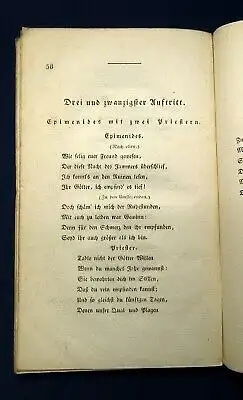 58
Drei und zwanzigster Auftritt.
Epimenides mit zwei Priestern.
Epimenides.
(Nach oben.)
Wie selig euer Freund gewesen,
Der diese Nacht des Jammers überschlief,
Ich konnt's an den Ruinen lesen,
Ihr Götter, ich empfind' es tief!
(Zu den Umstehenden.)
Doch schäm' ich mich der Ruhestunden,
Mit euch zu leiden war Gewinn:
Denn für den Schmerz den ihr empfunden,
Seyd ihr auch größer als ich bin.
Priester.
Tadle nicht der Götter Willen
Wenn du manches Jahr gewannst:
Sie bewahrten dich im Stillen,
Daß du rein empfinden kannst;
Und so gleichst du künft'gen Tagen,
Denen unsre Qual und Plagen